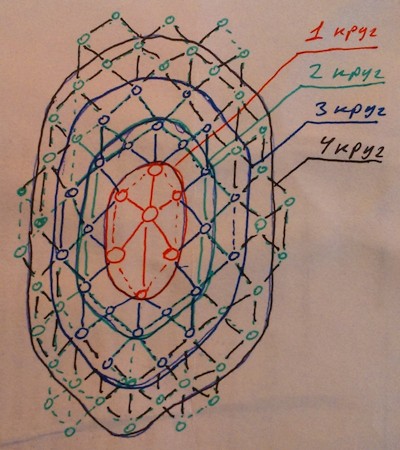 1 круг
2 круг
3 круг
4 круг